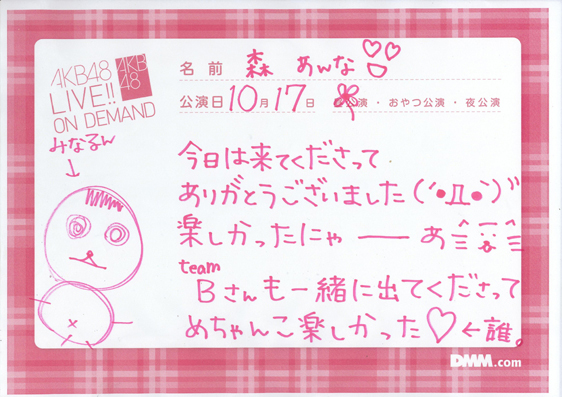 AKB48
LIVE!!
ON DEMAND
AKB
48
名前 森 あんな
公演日 10月17日 公演・おやつ公演・夜公演
みなるん
↓
今日は来てくださって
ありがとうございました(´•Д•`)ゞ
楽しかったにゃーーあ
team
Bさんも一緒に出てくださって
めちゃんこ楽しかった♡←誰。
DMM.com